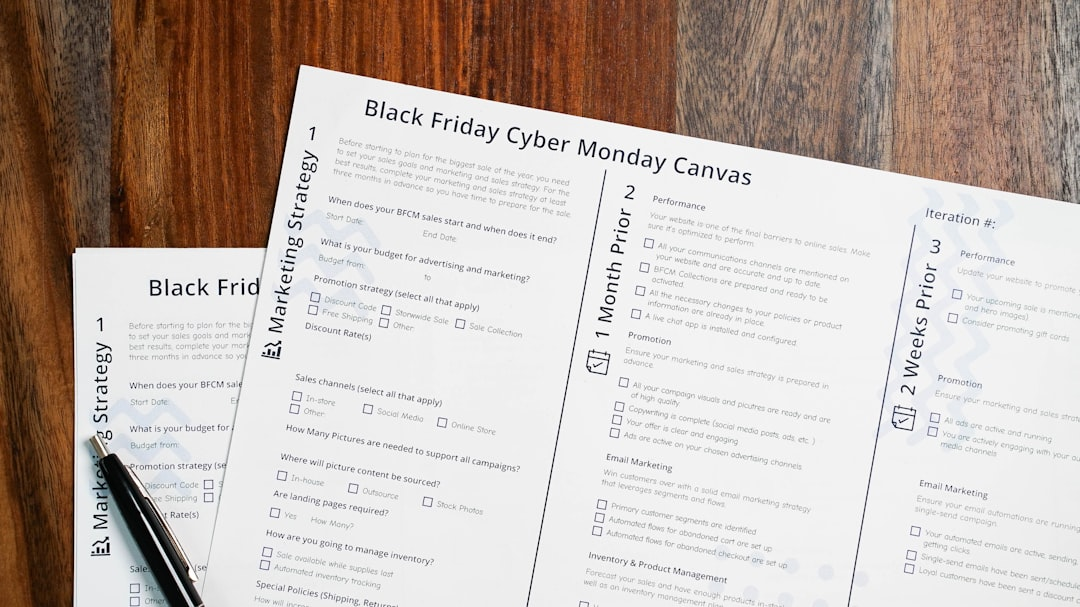 Black Friday Cyber Monday Canvas
Marketing Strategy 1
Before starting to plan for the biggest sale of the year, you need
to set your sales goals and marketing and sales strategy. For the
best results, complete your marketing and sales strategy at least
three months in advance so you have time to prepare for the sale.
When does your BFCM sales start and when does it end?
Start Date: End Date:
What is your budget for advertising and marketing?
Budget from: to
Promotion strategy (select all that apply)
Discount Code Storwwide Sale Sale Collection
Free Shipping Other:
Discount Rate(s)
Sales channels (select all that apply)
In-store Social Media Online Store
Other:
How Many Pictures are needed to support all campaigns?
Where will picture content be sourced?
In-house Outsource Stock Photos
Are landing pages required?
Yes How Many?
How are you going to manage inventory?
Sale available while supplies last
Automated inventory tracking
Special Policies (Shipping, Returns
How will
1 Month Prior 2
Performance
Your website is one of the final barriers to online sales. Make
sure it's optimized to perform.
All your communications channels are mentioned on
your website and are accurate and up to date.
BFCM Collections are prepared and ready to be
activated.
All the necessary changes to your policies or product
information are already in place.
A live chat app is installed and configured.
Promotion
Ensure your marketing and sales strategy is prepared in
advance.
All your campaign visuals and picutres are ready and are
of high quality.
Copywriting is complete (social media posts, ads, etc. )
Your offer is clear and engaging
Ads are active on your chosen advertising channels.
Email Marketing
Win customers over with a solid email marketing strategy
that leverages segments and flows
Primary customer segments are identified
Automated flows for abandoned cart are set up
Automated flows for abandoned checkout are set up
Inventory & Product Management
Forecast your sales and have enough products in-sto
well as an inventory management
Iteration #:
2 Weeks Prior 3
Performance
Update your website to promote
Your upcoming sale is mention
and hero images)
Consider promoting gift cards
Promotion
Ensure your marketing and sales strat
All ads are active and running
You are actively engaging with your au
media channels
Email Marketing
Ensure your email automations are running
single-send campaign.
Your automated emails are active, sending,
getting clicks.
Single-send emails have been sent/schedul
Loyal customers have been sent a discount c
Black Frid
Strategy 1
Before starting to plan for the bi
to set your sales goals and mark
best results, complete your mar
three months in advance so yo
When does your BFCM sale
Start Date: E
What is your budget for
Budget from:
Promotion strategy (se
Discount Code
Free Shipping
t Rate(s)
In-store
Other